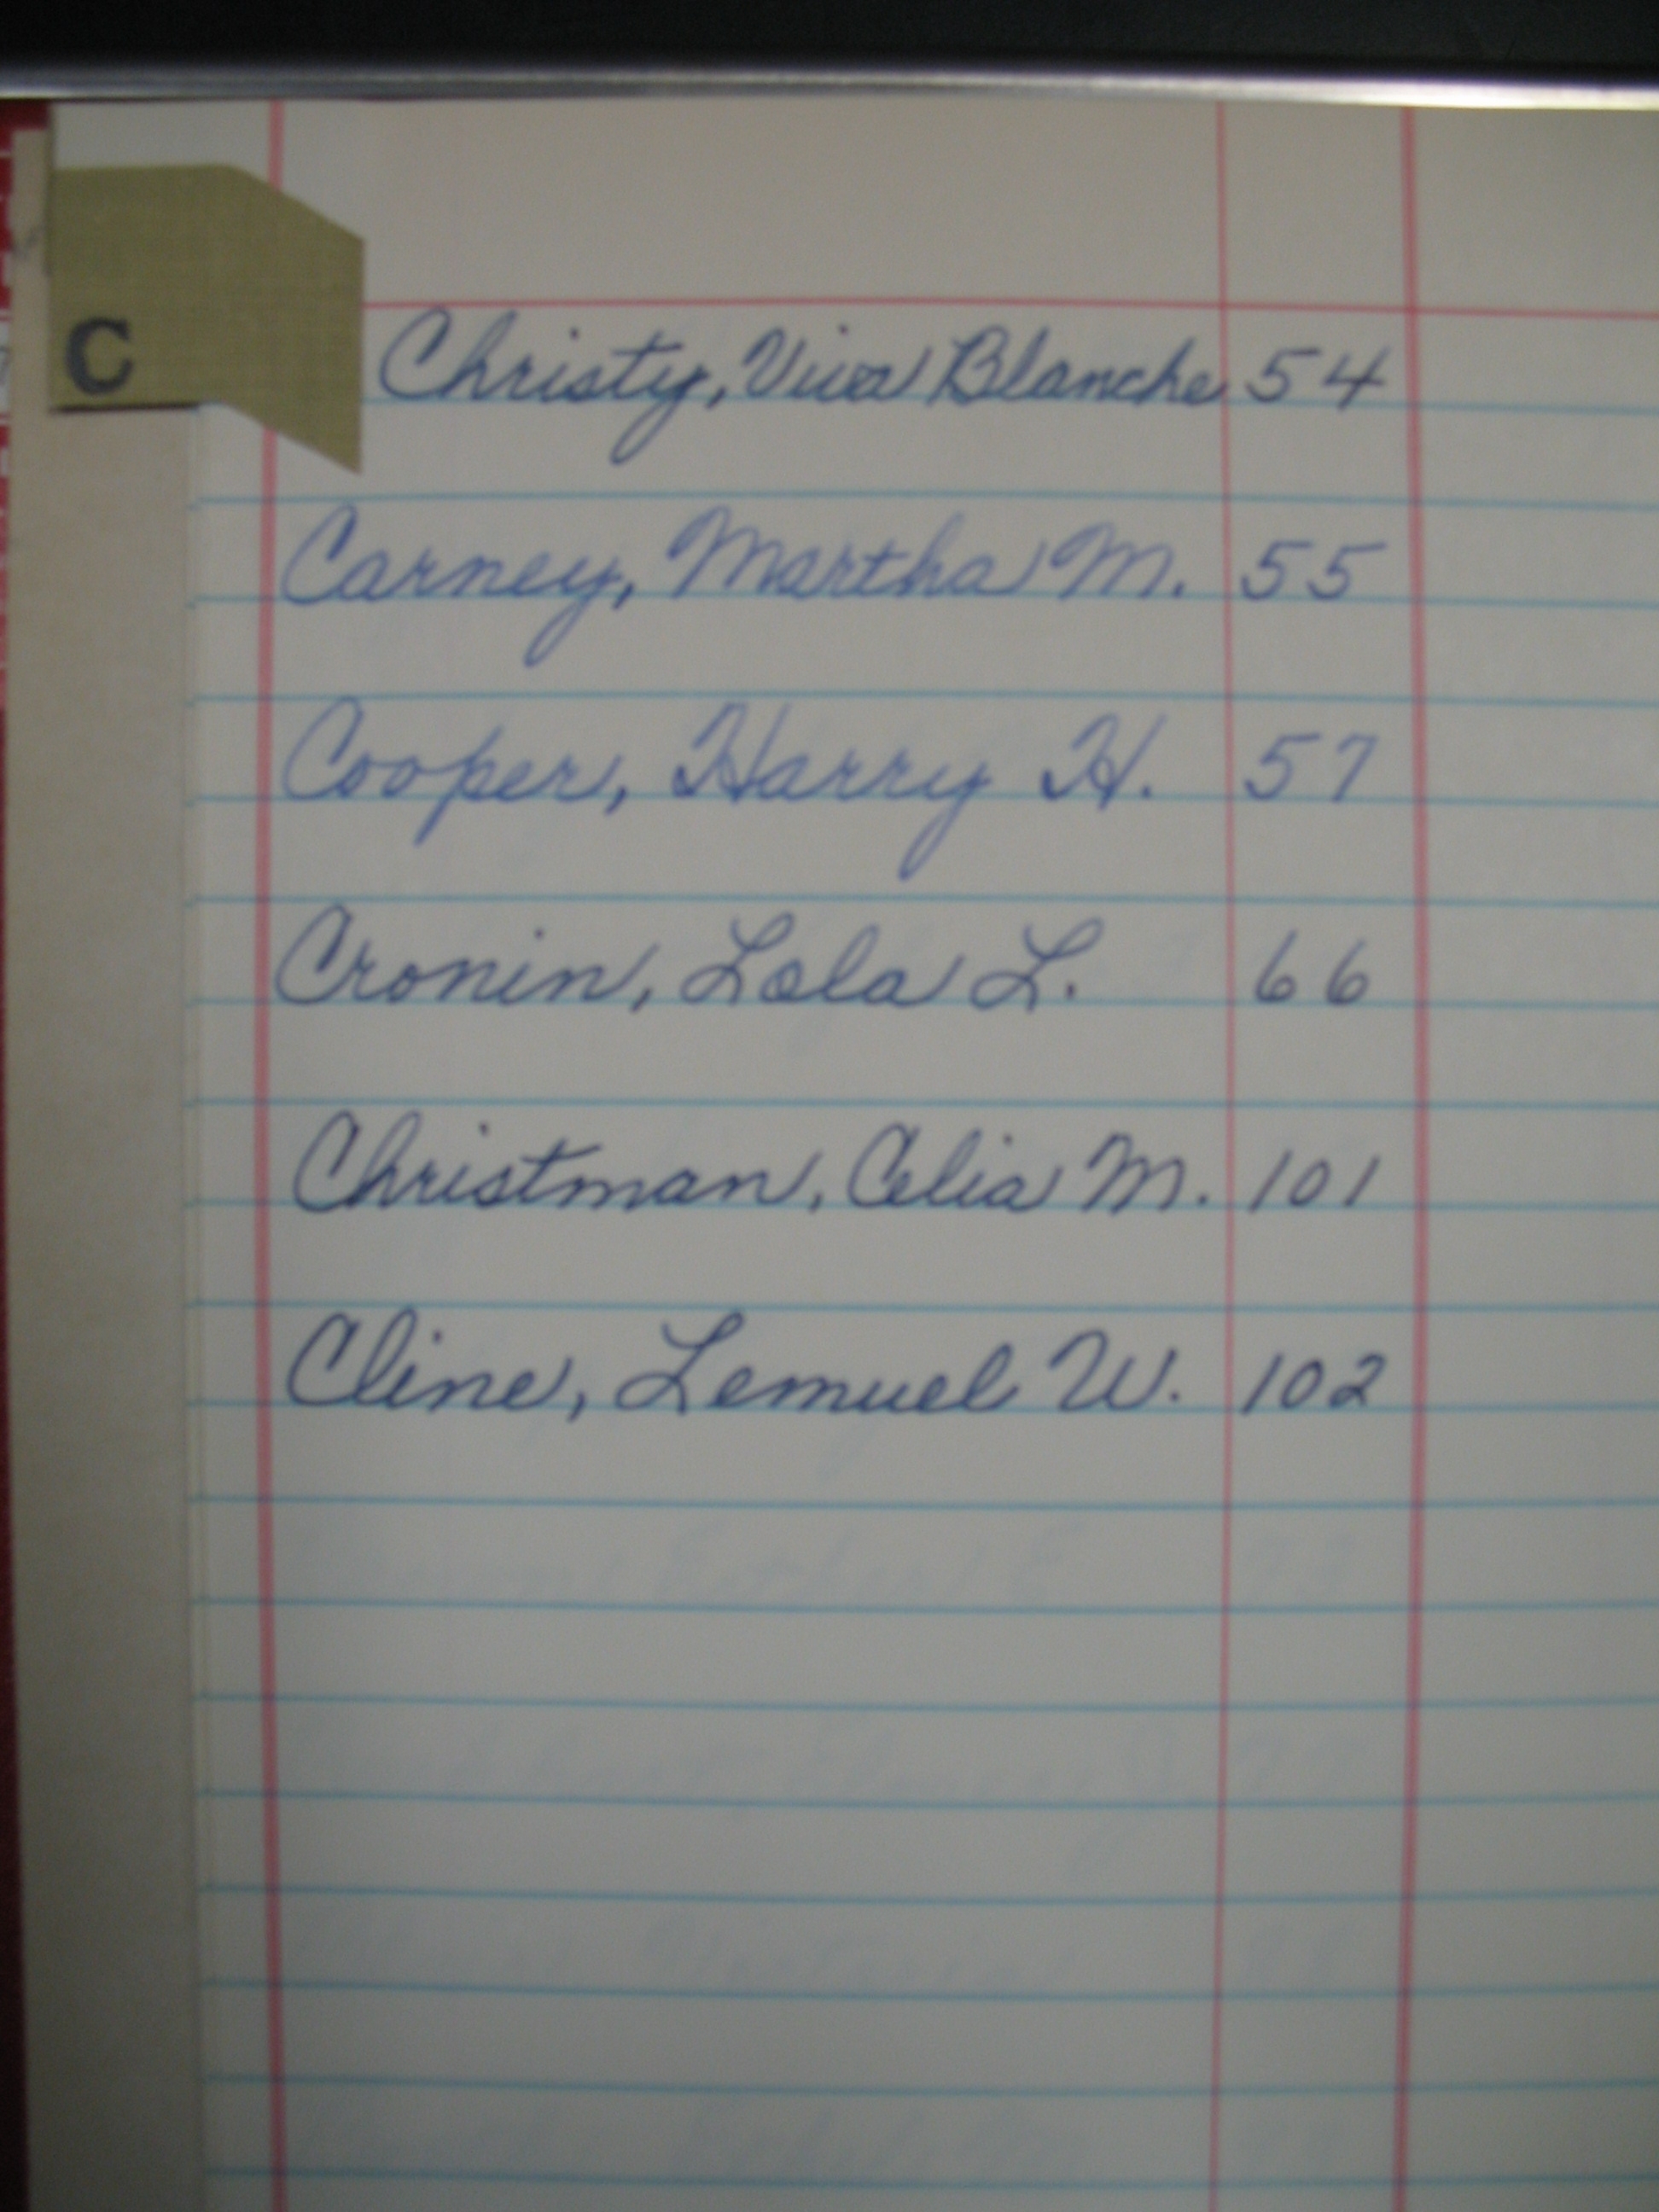 C
Christy, Viva Blanche 54
Carney, Martha M. 55
Cooper, Harry H. 57
Cronin, Lola L. 66
Christman, Celia M. 101
Cline, Lemuel W. 102